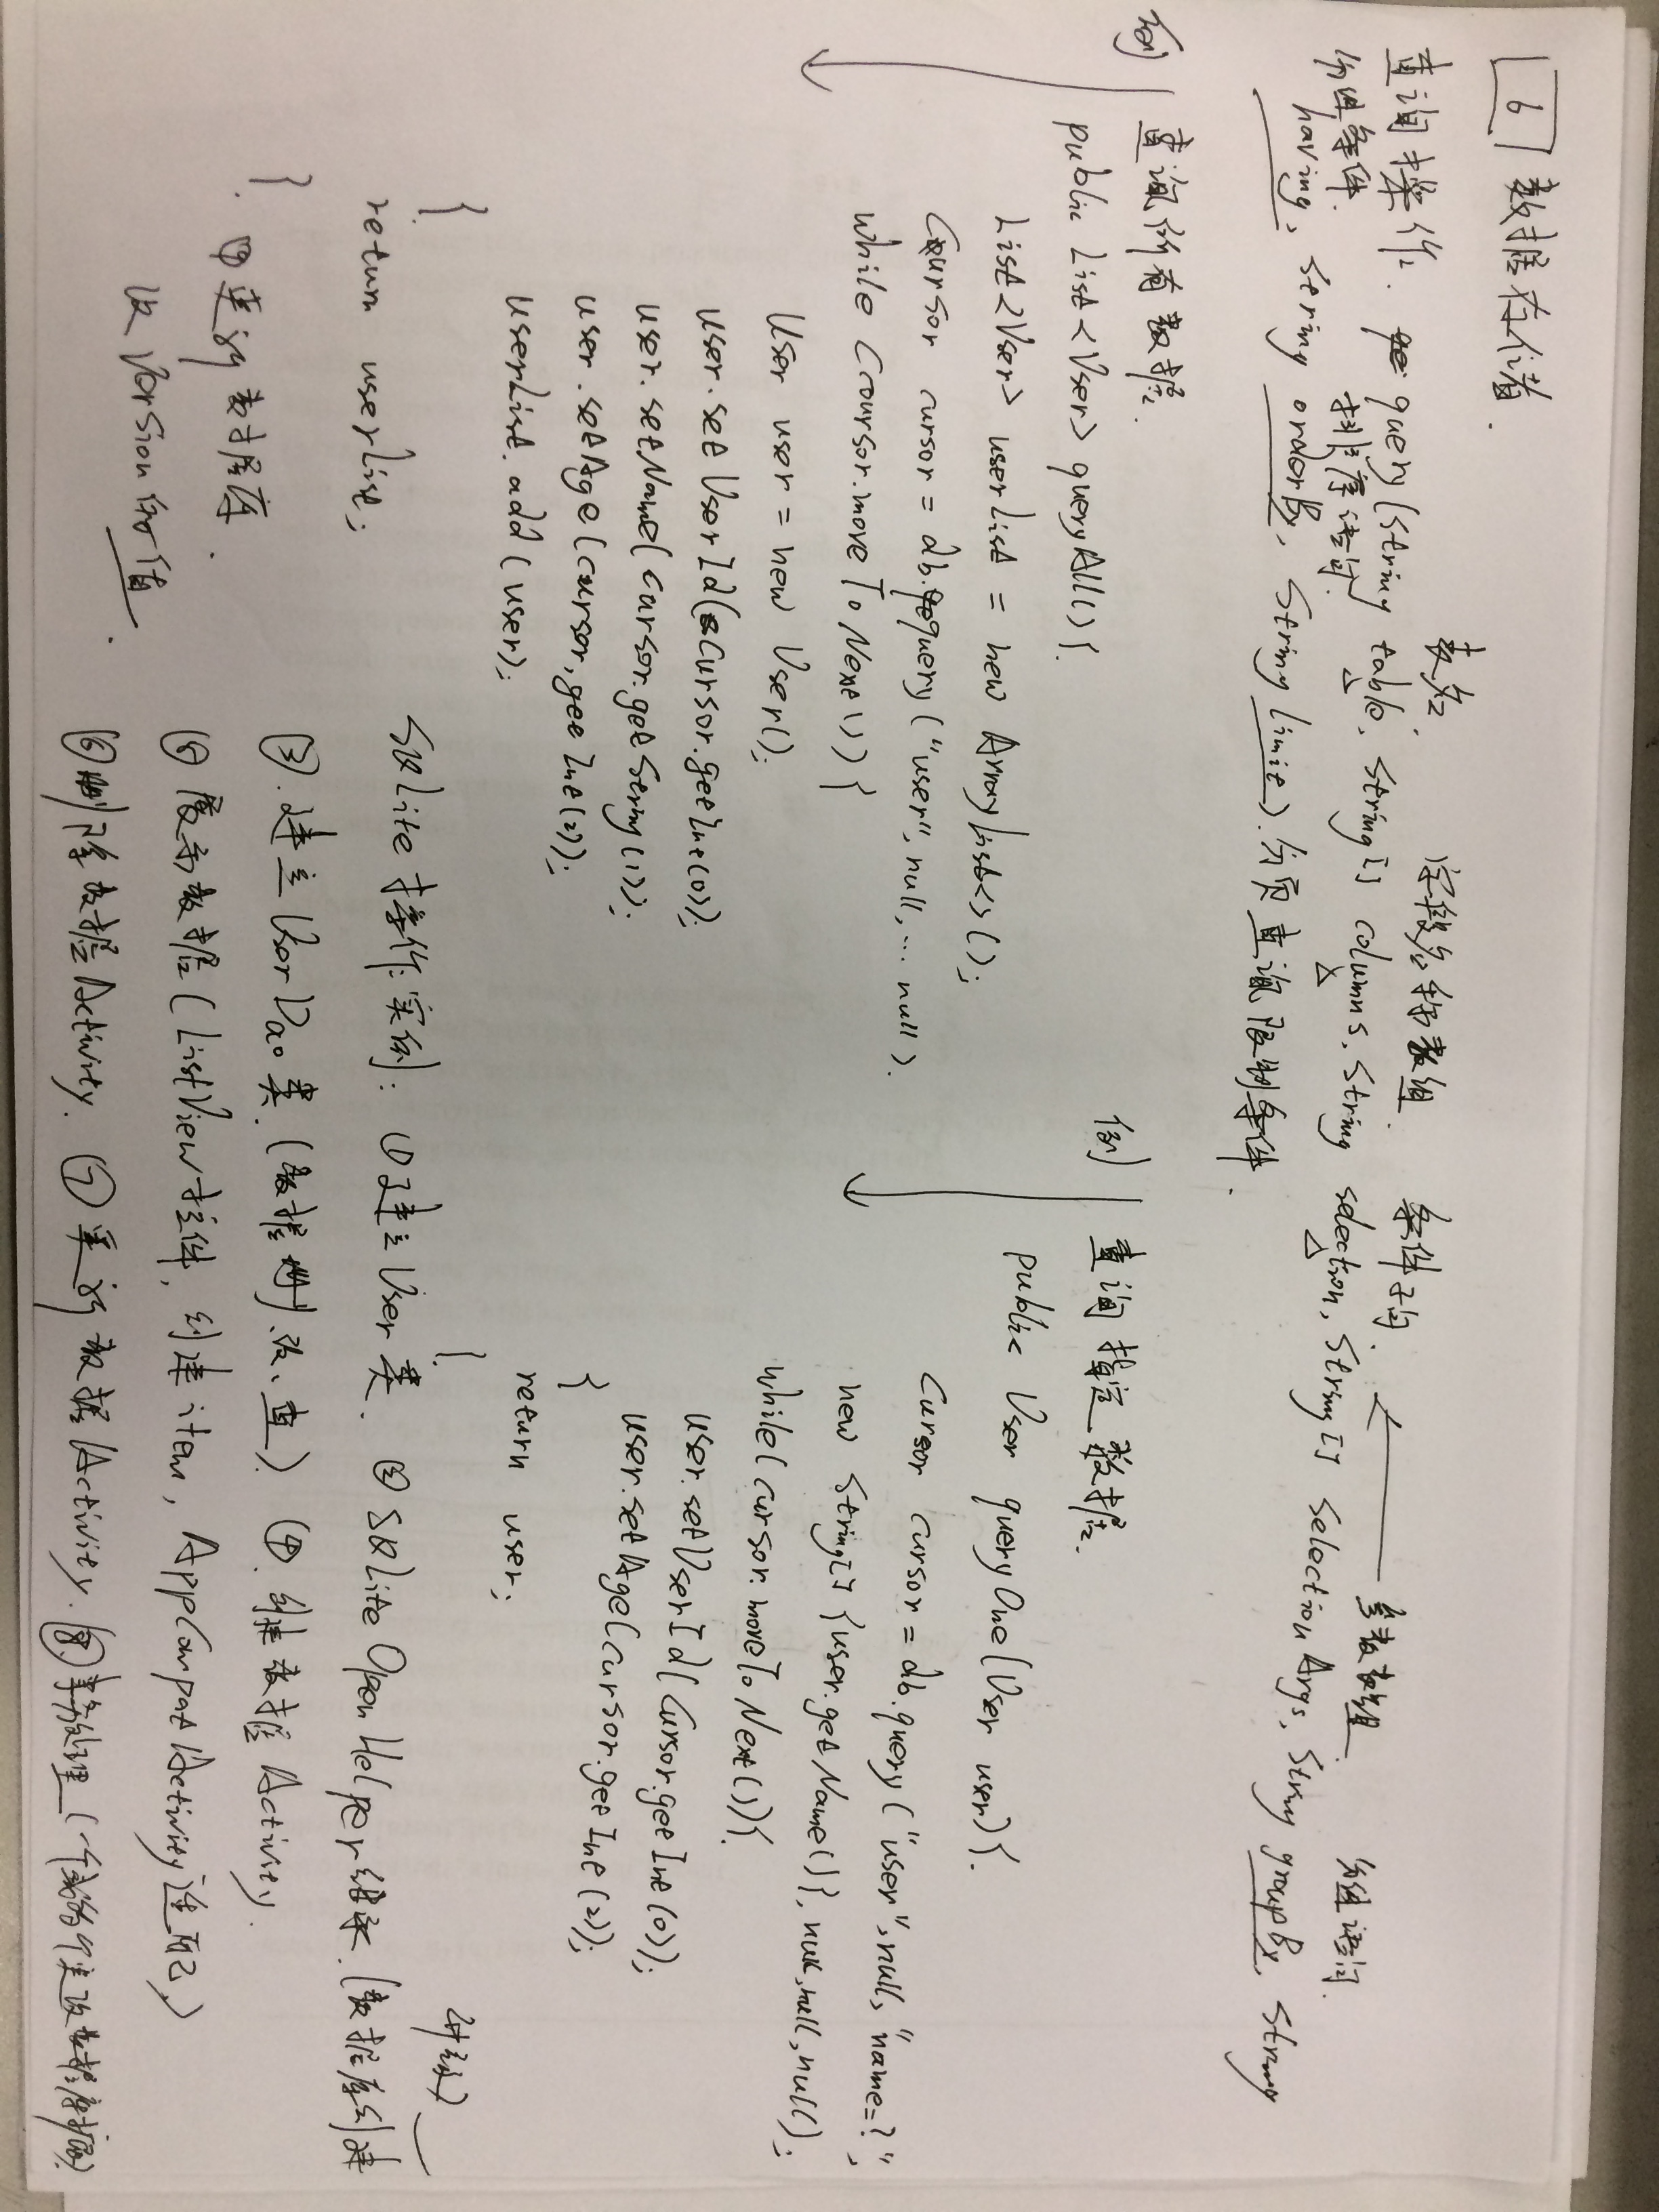 6 数据存储.
表名. 字段名称数组. 条件子句. 参数数组 分组语句.
查询操作. query(String table, String[] columns, String selection, String[] selectionArgs, String groupBy, String
分组条件. 排序语句
having, String orderBy, String limit). 分页查询限制条件.
例 查询所有数据.
public List<User> queryAll(){
List<User> userList = new ArrayList<>();
Cursor cursor = db.query("user", null, ... null).
while (cursor.moveToNext()){
User user = new User();
user.setUserId(cursor.getInt(0));
user.setName(cursor.getString(1));
user.setAge(cursor.getInt(2));
userList.add(user);
}
return userList;
}.
例 查询指定数据.
public User queryOne(User user){.
Cursor cursor = db.query("user", null, "name=?",
new String[]{user.getName()}, null, null, null);
while(cursor.moveToNext()){.
user.setUserId(cursor.getInt(0));
user.setAge(cursor.getInt(2));
}
return user;
}.
SQLite操作实例: ①建立User类. ②SQLiteOpenHelper继承.(数据库创建
升级)
③.建立UserDao类.(数据 删.改.查) ④.创建数据Activity.
⑤展示数据(ListView控件, 创建item, AppCompatActivity适配)
⑥删除数据Activity. ⑦更新数据Activity. ⑧事务处理
④更新数据库.
改Version的值.